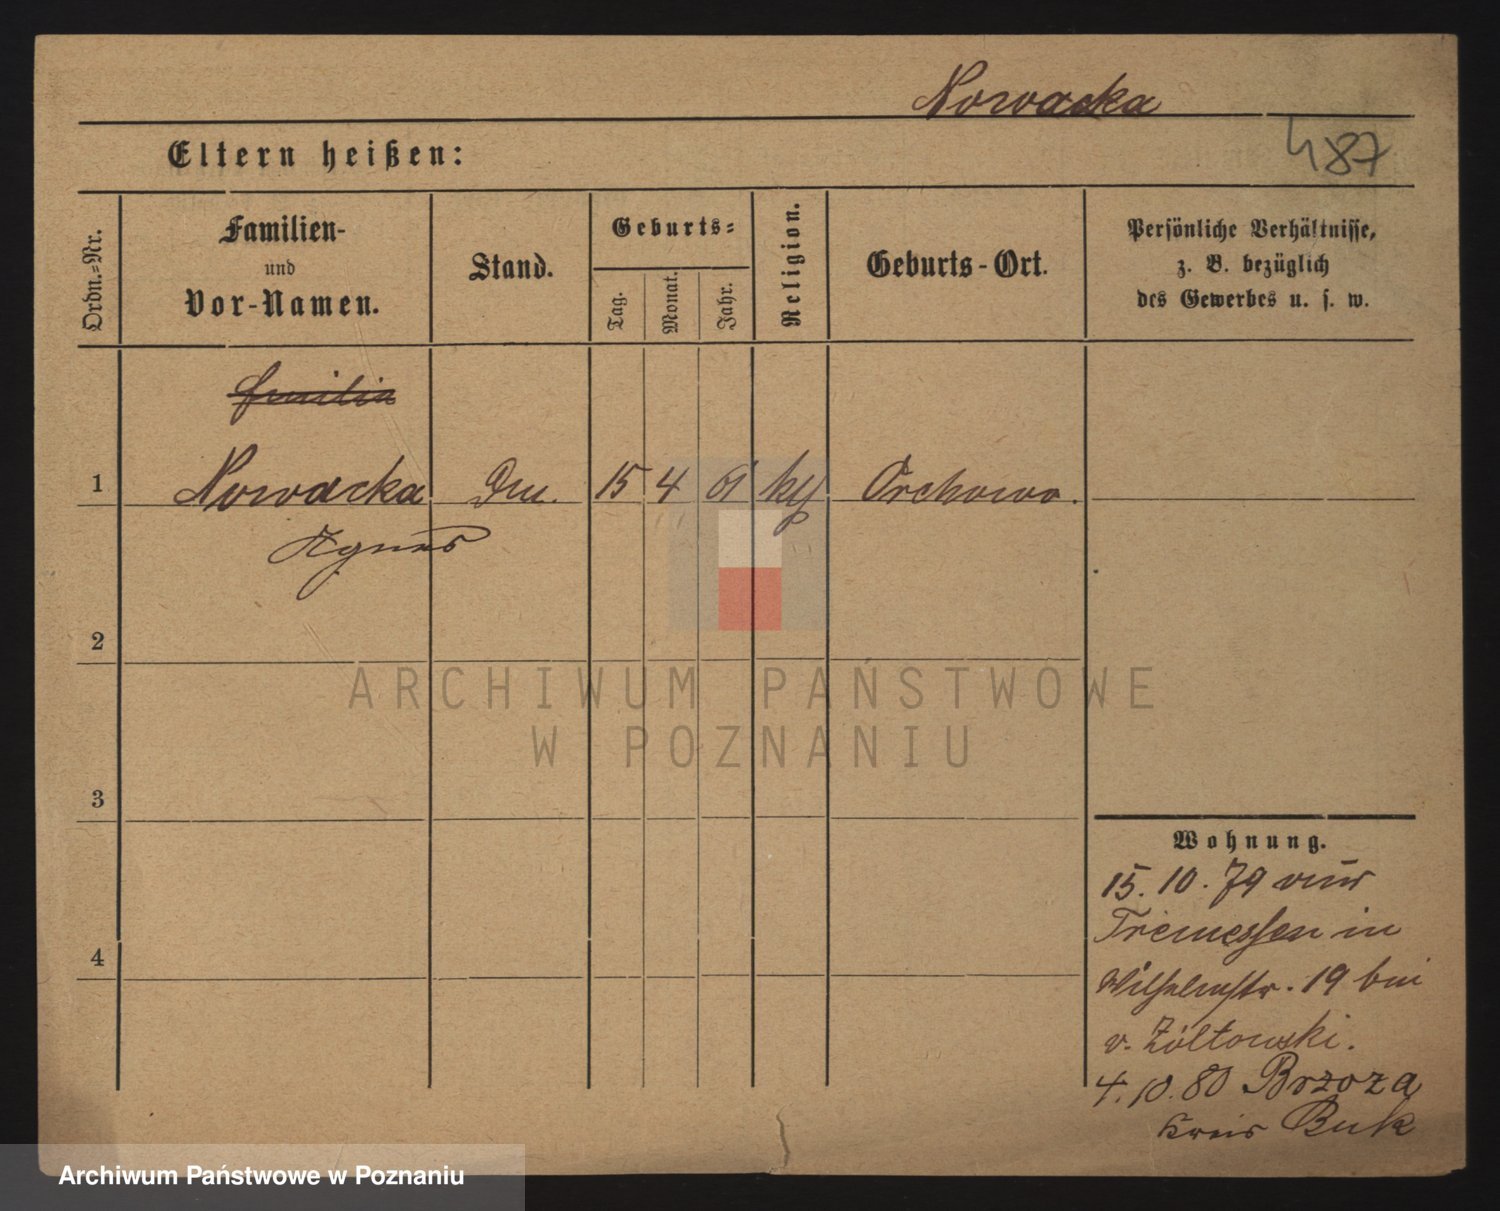 Nowacka
487
Eltern heißen:
Ordn.-Nr.
Familien-
und
Vor-Namen.
Stand.
Geburts-
Tag.
Monat.
Jahr.
Religion.
Geburts-Ort.
Persönliche Verhältnisse,
z. B. bezüglich
des Gewerbes u. s. w.
Emilia
1 Nowacka 15 4 61 Orchowo.
Agnes
2
3
4
ARCHIWUM PAŃSTWOWE
W POZNANIU
Wohnung.
15. 10. 79 aus
Tremessen in
Wilhelmstr. 19 bei
v. Zóltowski.
4. 10. 80 Brzoza
Kreis Buk
Archiwum Państwowe w Poznaniu